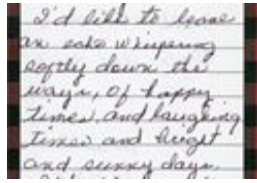 I'd like to leave
an echo whispering
softly down the
ways, Of happy
times, and laughing
times and bright
and sunny days.